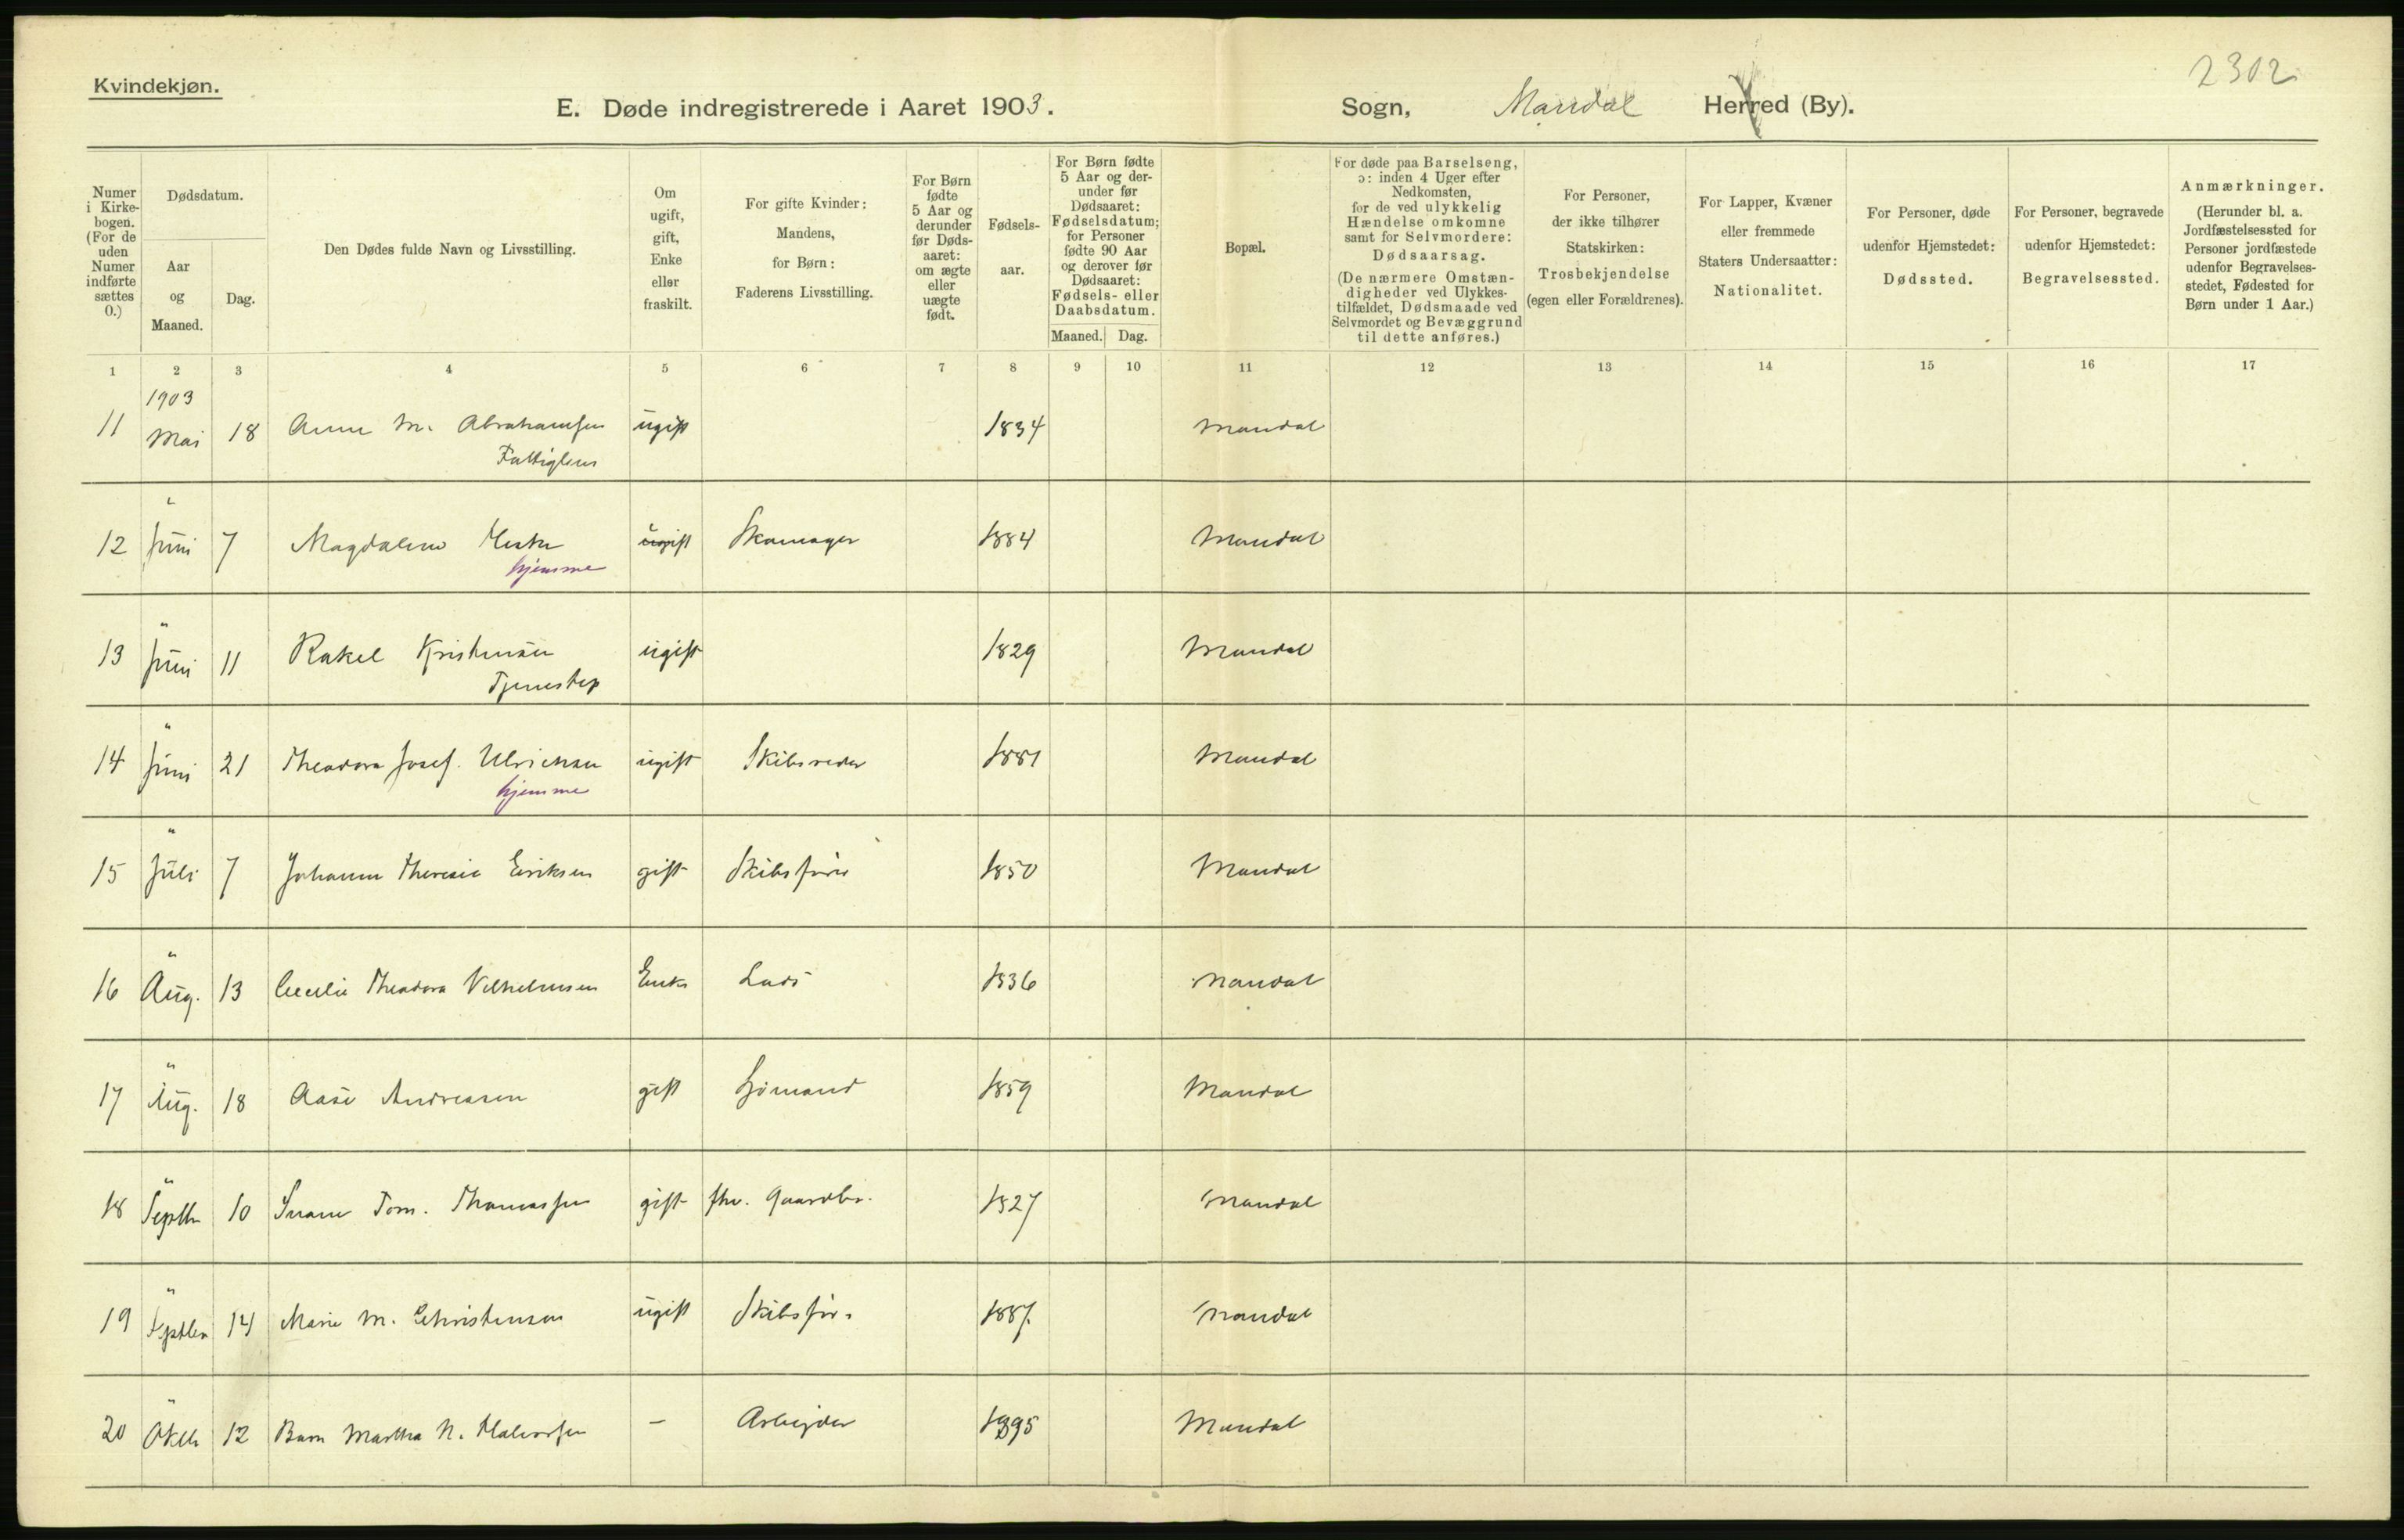 Kvindekjøn.
2302
E. Døde indregistrerede i Aaret 1903.
Sogn, Mandal Herred (By).
Numer i Kirkebogen. (For de uden Numer indførte sættes 0.)
Dødsdatum.
Aar og Maaned.
Dag.
Den Dødes fulde Navn og Livsstilling.
Om ugift, gift, Enke eller fraskilt.
For gifte Kvinder: Mandens, for Børn: Faderens Livsstilling.
For Børn fødte 5 Aar og derunder før Dødsaaret: om ægte eller uægte født.
Fødselsaar.
For Børn fødte 5 Aar og derunder før Dødsaaret: Fødselsdatum; for Personer fødte 90 Aar og derover før Dødsaaret: Fødsels- eller Daabsdatum.
Maaned. Dag.
Bopæl.
For døde paa Barselseng, ɔ: inden 4 Uger efter Nedkomsten, for de ved ulykkelig Hændelse omkomne samt for Selvmordere: Dødsaarsag.
(De nærmere Omstændigheder ved Ulykkestilfældet, Dødsmaade ved Selvmordet og Bevæggrund til dette anføres.)
For Personer, der ikke tilhører Statskirken: Trosbekjendelse (egen eller Forældrenes).
For Lapper, Kvæner eller fremmede Staters Undersaatter: Nationalitet.
For Personer, døde udenfor Hjemstedet: Dødssted.
For Personer, begravede udenfor Hjemstedet: Begravelsessted.
Anmærkninger.
(Herunder bl. a. Jordfæstelsessted for Personer jordfæstede udenfor Begravelsesstedet, Fødested for Børn under 1 Aar.)
1 2 3 4 5 6 7 8 9 10 11 12 13 14 15 16 17
1903
11 Mai 18 Anne M. Abrahamsen ugift 1834 Mandal
Fattiglem
12 " Juni 7 Magdalene ugift Skomager 1884 Mandal
hjemme
13 " Juni 11 Rakel Kristensen ugift 1829 Mandal
Tjenestep
14 " Juni 21 Theodora Josef. Ulrichsen ugift Skibsreder 1881 Mandal
hjemme
15 " Juli 7 Johanne Theresie Eriksen gift Skibsfører 1850 Mandal
16 " Aug. 13 Cecilie Theodora Vilhelmsen Enke Lods 1836 Mandal
17 " Aug. 18 Aase Andreasen gift Sjømand 1859 Mandal
18 " Septbr 10 Tom. Thomassen gift fhv. Gaardbr. 1827 Mandal
19 " Septbr 14 Marie M. Christensen ugift Skibsfør. 1887. Mandal
20 " Oktb 12 Barn Martha N. Halvorsen — Arbejder 1895 Mandal